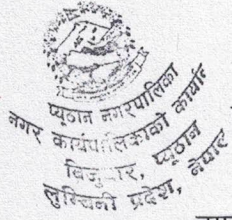 प्यूठान नगरपालिका
नगर कार्यपालिकाको कार्याल
बिजुवार, प्यूठान
लुम्बिनी प्रदेश, नेपाल